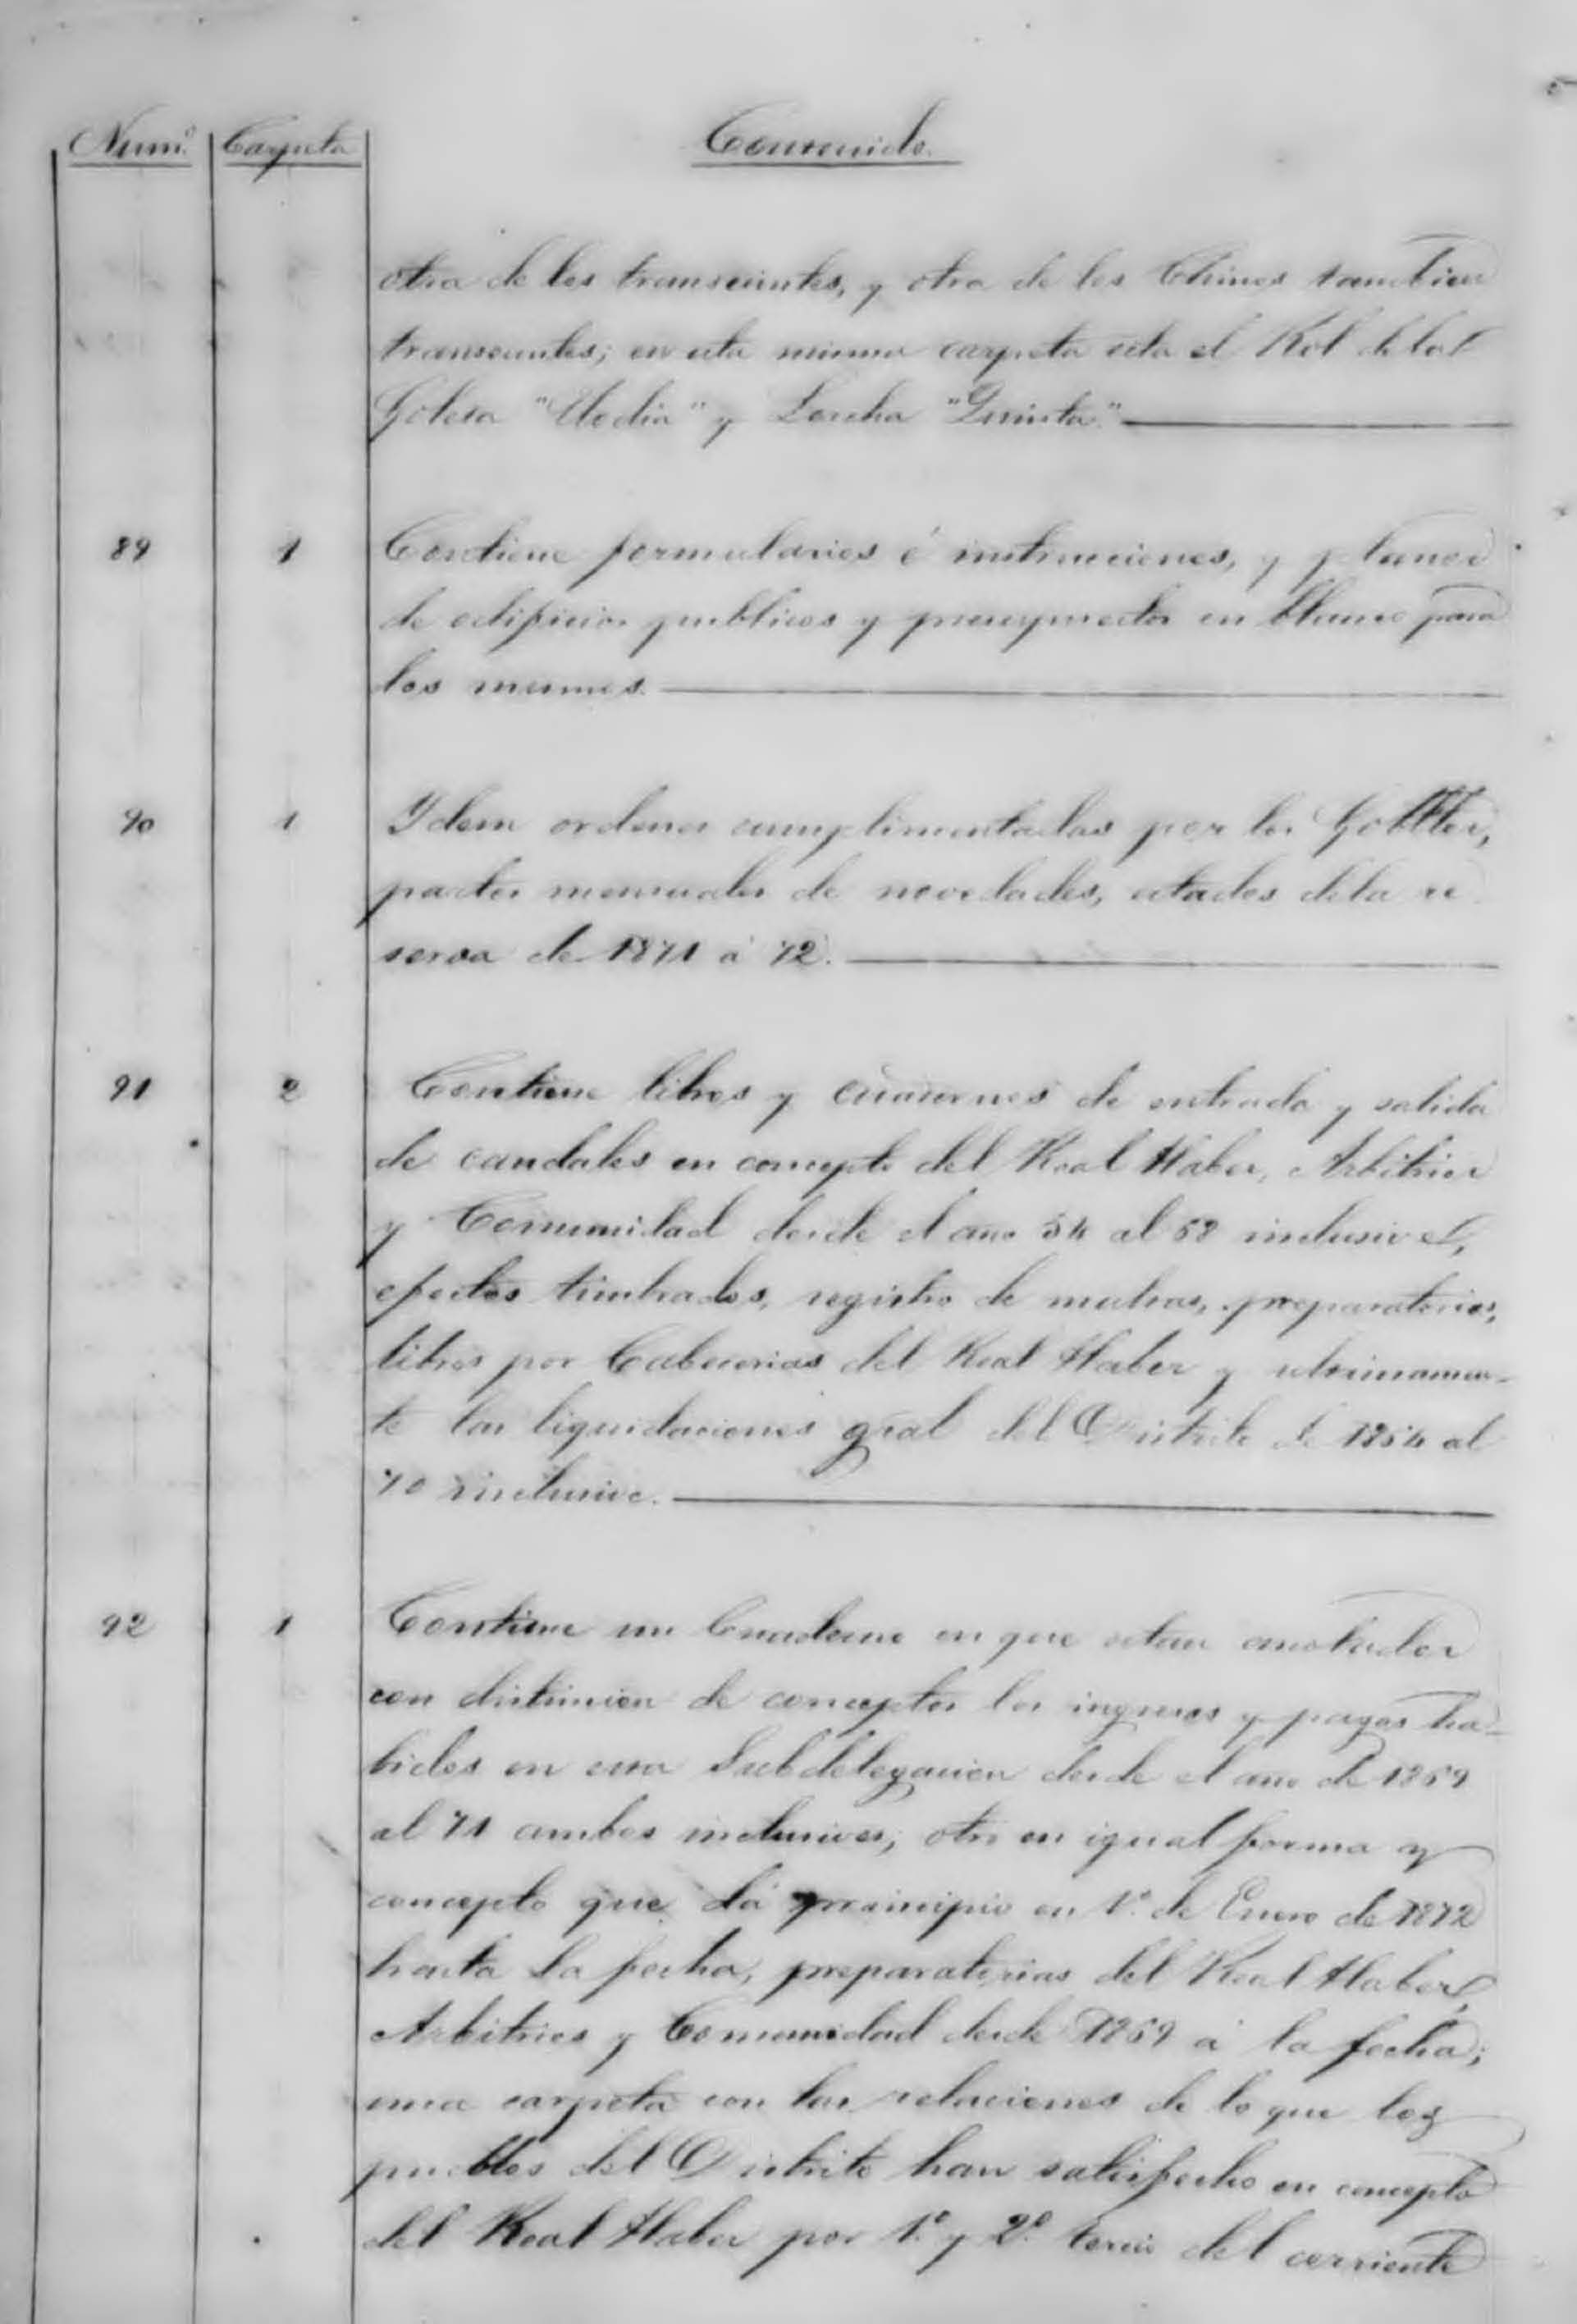 Num.º Carpeta Contenido.
otra de los transeuntes, y otra de los Chinos tambien
transeuntes; en esta misma carpeta esta el Rol de la
Goleta "Elodia" y Lorcha "Quinta."
89 1 Contiene formularios é instrucciones, y planos
de edificios publicos y presupuestos en blanco para
los mismos.
90 1 Ydem ordenes cumplimentadas por los Gobllos,
partes mensuales de novedades, estados de la re
serva de 1871 á 72.
91 2 Contiene libros y cuadernos de entrada y salida
de caudales en concepto del Real Haber, Arbitrios
y Comunidad desde el año 54 al 68 inclusive,
efectos timbrados, registro de multas, preparatorias,
libros por Cabecerias del Real Haber y ultimamen-
te las liquidaciones gral del Distrito de 1854 al
70 inclusive.
92 1 Contiene un Cuaderno en que estan anotados
con distincion de conceptos los ingresos y pagos ha-
bidos en esta Subdelegacion desde el año de 1869
al 71 ambos inclusives; otro en igual forma y
concepto que dá principio en 1.º de Enero de 1872
hasta la fecha, preparatorias del Real Haber,
Arbitrios y Comunidad desde 1869 á la fecha;
una carpeta con las relaciones de lo que los
pueblos del Distrito han satisfecho en concepto
del Real Haber por 1.º y 2.º tercio del corriente